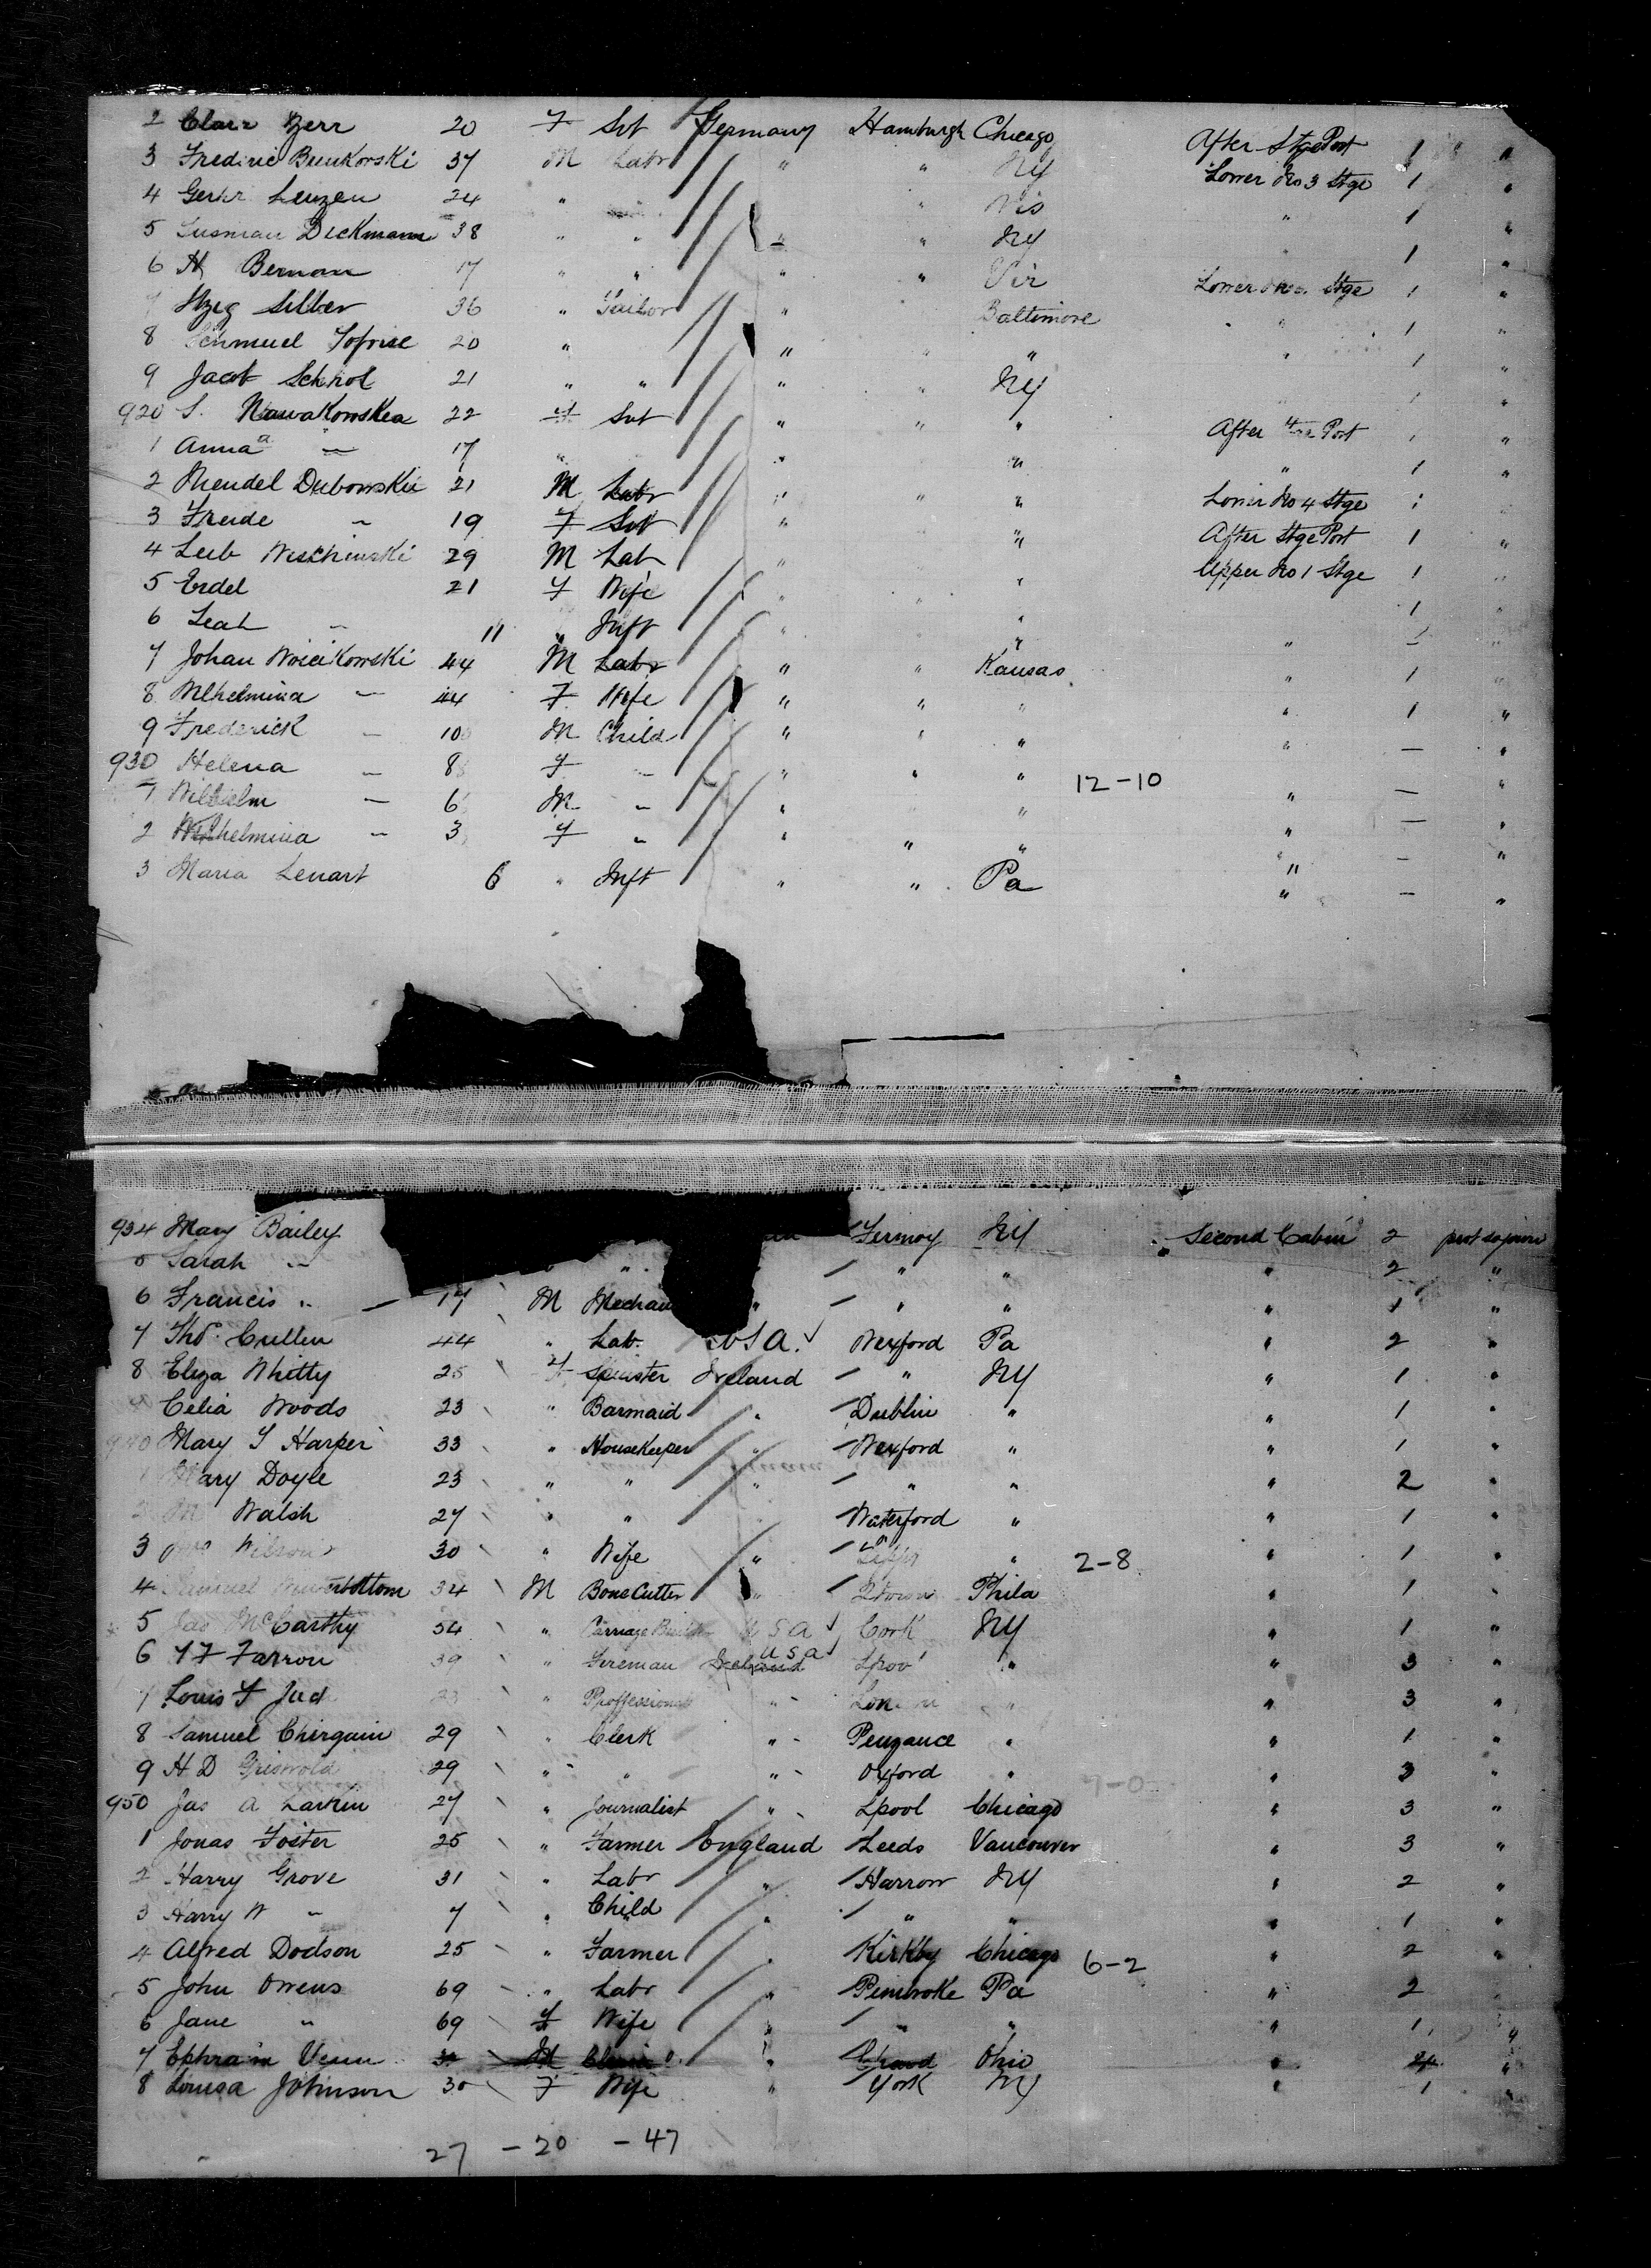 2 Clara Zerr 20 F Svt Germany Hamburgh Chicago After Stge Port 1 "
3 Frederic Bunkorski 37 M Labr " " NY Lower No 3 Stge 1 "
4 Gerhr Leuzen 24 " " Wis " 1 "
5 Susman Dickmann 38 " " " " NY 1 "
6 A Berman 17 " " " " Vir Lower No Stge 1 "
7 Itzeg Silber 36 " Tailor " Baltimore " 1 "
8 Schmuel 20 " " " " " 1 "
9 Jacob Schkol 21 " " " " NY 1 "
920 S. Nawakowskea 22 F Svt " " " After Stge Port 1 "
1 Anna — 17 " " " " 1 "
2 Mendel Dubowskie 21 M Labr " " " Lower No 4 Stge 1
3 Freude " 19 F Svt " " After Stge Port 1 "
4 Leib Wischinski 29 M Lab " " Upper No 1 Stge 1 "
5 Erdel 21 F Wife " " " 1 "
6 Leah — 11 " Inft " " " " — "
7 Johan Woicikowski 44 M Labr " " Kansas " 1 "
8 Wlhelmina — 44 F Wife " " " " 1 "
9 Frederick — 10 M Child " " " " — "
930 Helena — 8 F — " " " 12-10 "
1 Wilhelm — 6 M " " " " — "
2 Wilhelmina — 3 F " " " " " — "
3 Maria Lenart 6 " Inft " " Pa " — "
934 Mary Bailey Fermoy NY Second Cabin 2
5 Sarah " " " " " 2 "
6 Francis " — 17 M Mechan " " " " 1 "
7 Thos. Cullen 44 " Lab. USA. Wexford Pa " 2 "
8 Eliza Whitty 25 F Spinster Ireland " NY " 1 "
9 Celia Woods 23 " Barmaid " Dublin " " 1 "
940 Mary S Harper 33 " Housekeeper " Wexford " " 1 "
1 Mary Doyle 23 " " " " " " 2 "
2 M Walsh 27 " " Waterford " " 1 "
3 Mrs Wilson 30 " Wife " " 2-8 " 1 "
4 Samuel 34 M Bone Cutter " Phila " 1 "
5 Jas McCarthy 54 " Carriage Build USA Cork NY " 1 "
6 T F Farron 39 " Fireman Ireland USA Lpool " " 3 "
7 Louis F Jud 23 " Proffessional " London " " 3 "
8 Samuel Chirgwin 29 " Clerk " Penzance " " 1 "
9 H D Griswold 29 " " " Oxford " 7-0 " 3 "
950 Jas A Larkin 27 " Journalist " Lpool Chicago " 3 "
1 Jonas Foster 25 " Farmer England Leeds Vancouver " 3 "
2 Harry Grove 31 " Labr " Harrow NY " 2 "
3 Harry W " 7 " Child " " " " 1 "
4 Alfred Dodson 25 " Farmer " Kirkby Chicago 6-2 " 2 "
5 John Owens 69 " Labr " Pembroke Pa " 2
6 Jane " 69 F Wife " " " " 1 "
7 Ephraim Venn M " Ohio " "
8 Louisa Johnson 30 F Wife " York NY " 1 "
27 - 20 - 47